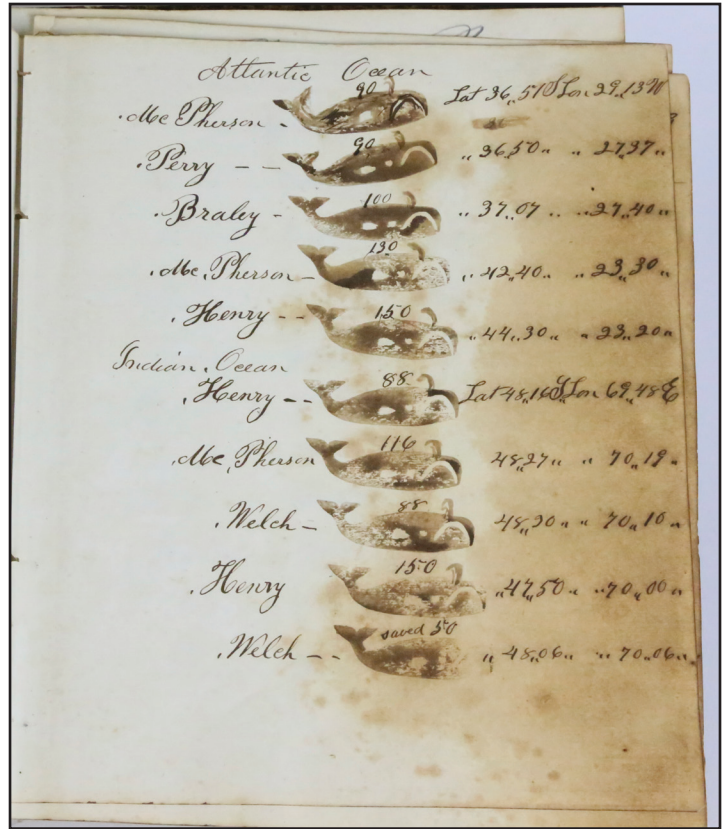 Atlantic Ocean
Mc Pherson - 90 Lat 36,,51 S Lon 29,,13 W
Perry - - 90 " 36,,50 " " 27,,37 "
Braley - 100 " 37,,07 " " 27,,40 "
Mc Pherson - 130 " 42,,40 " " 23,,30 "
Henry - - 150 " 44,,30 " " 23,,20 "
Indian Ocean
Henry - - 88 Lat 48,,16 S Lon 69,,48 E
Mc Pherson 116 48,,27 " " 70,,19 "
Welch - 88 48,,20 " " 70,,10 "
Henry 150 " 47,,50 " " 70,,00 "
Welch - - saved 50 " 48,,06 " " 70,,06 "